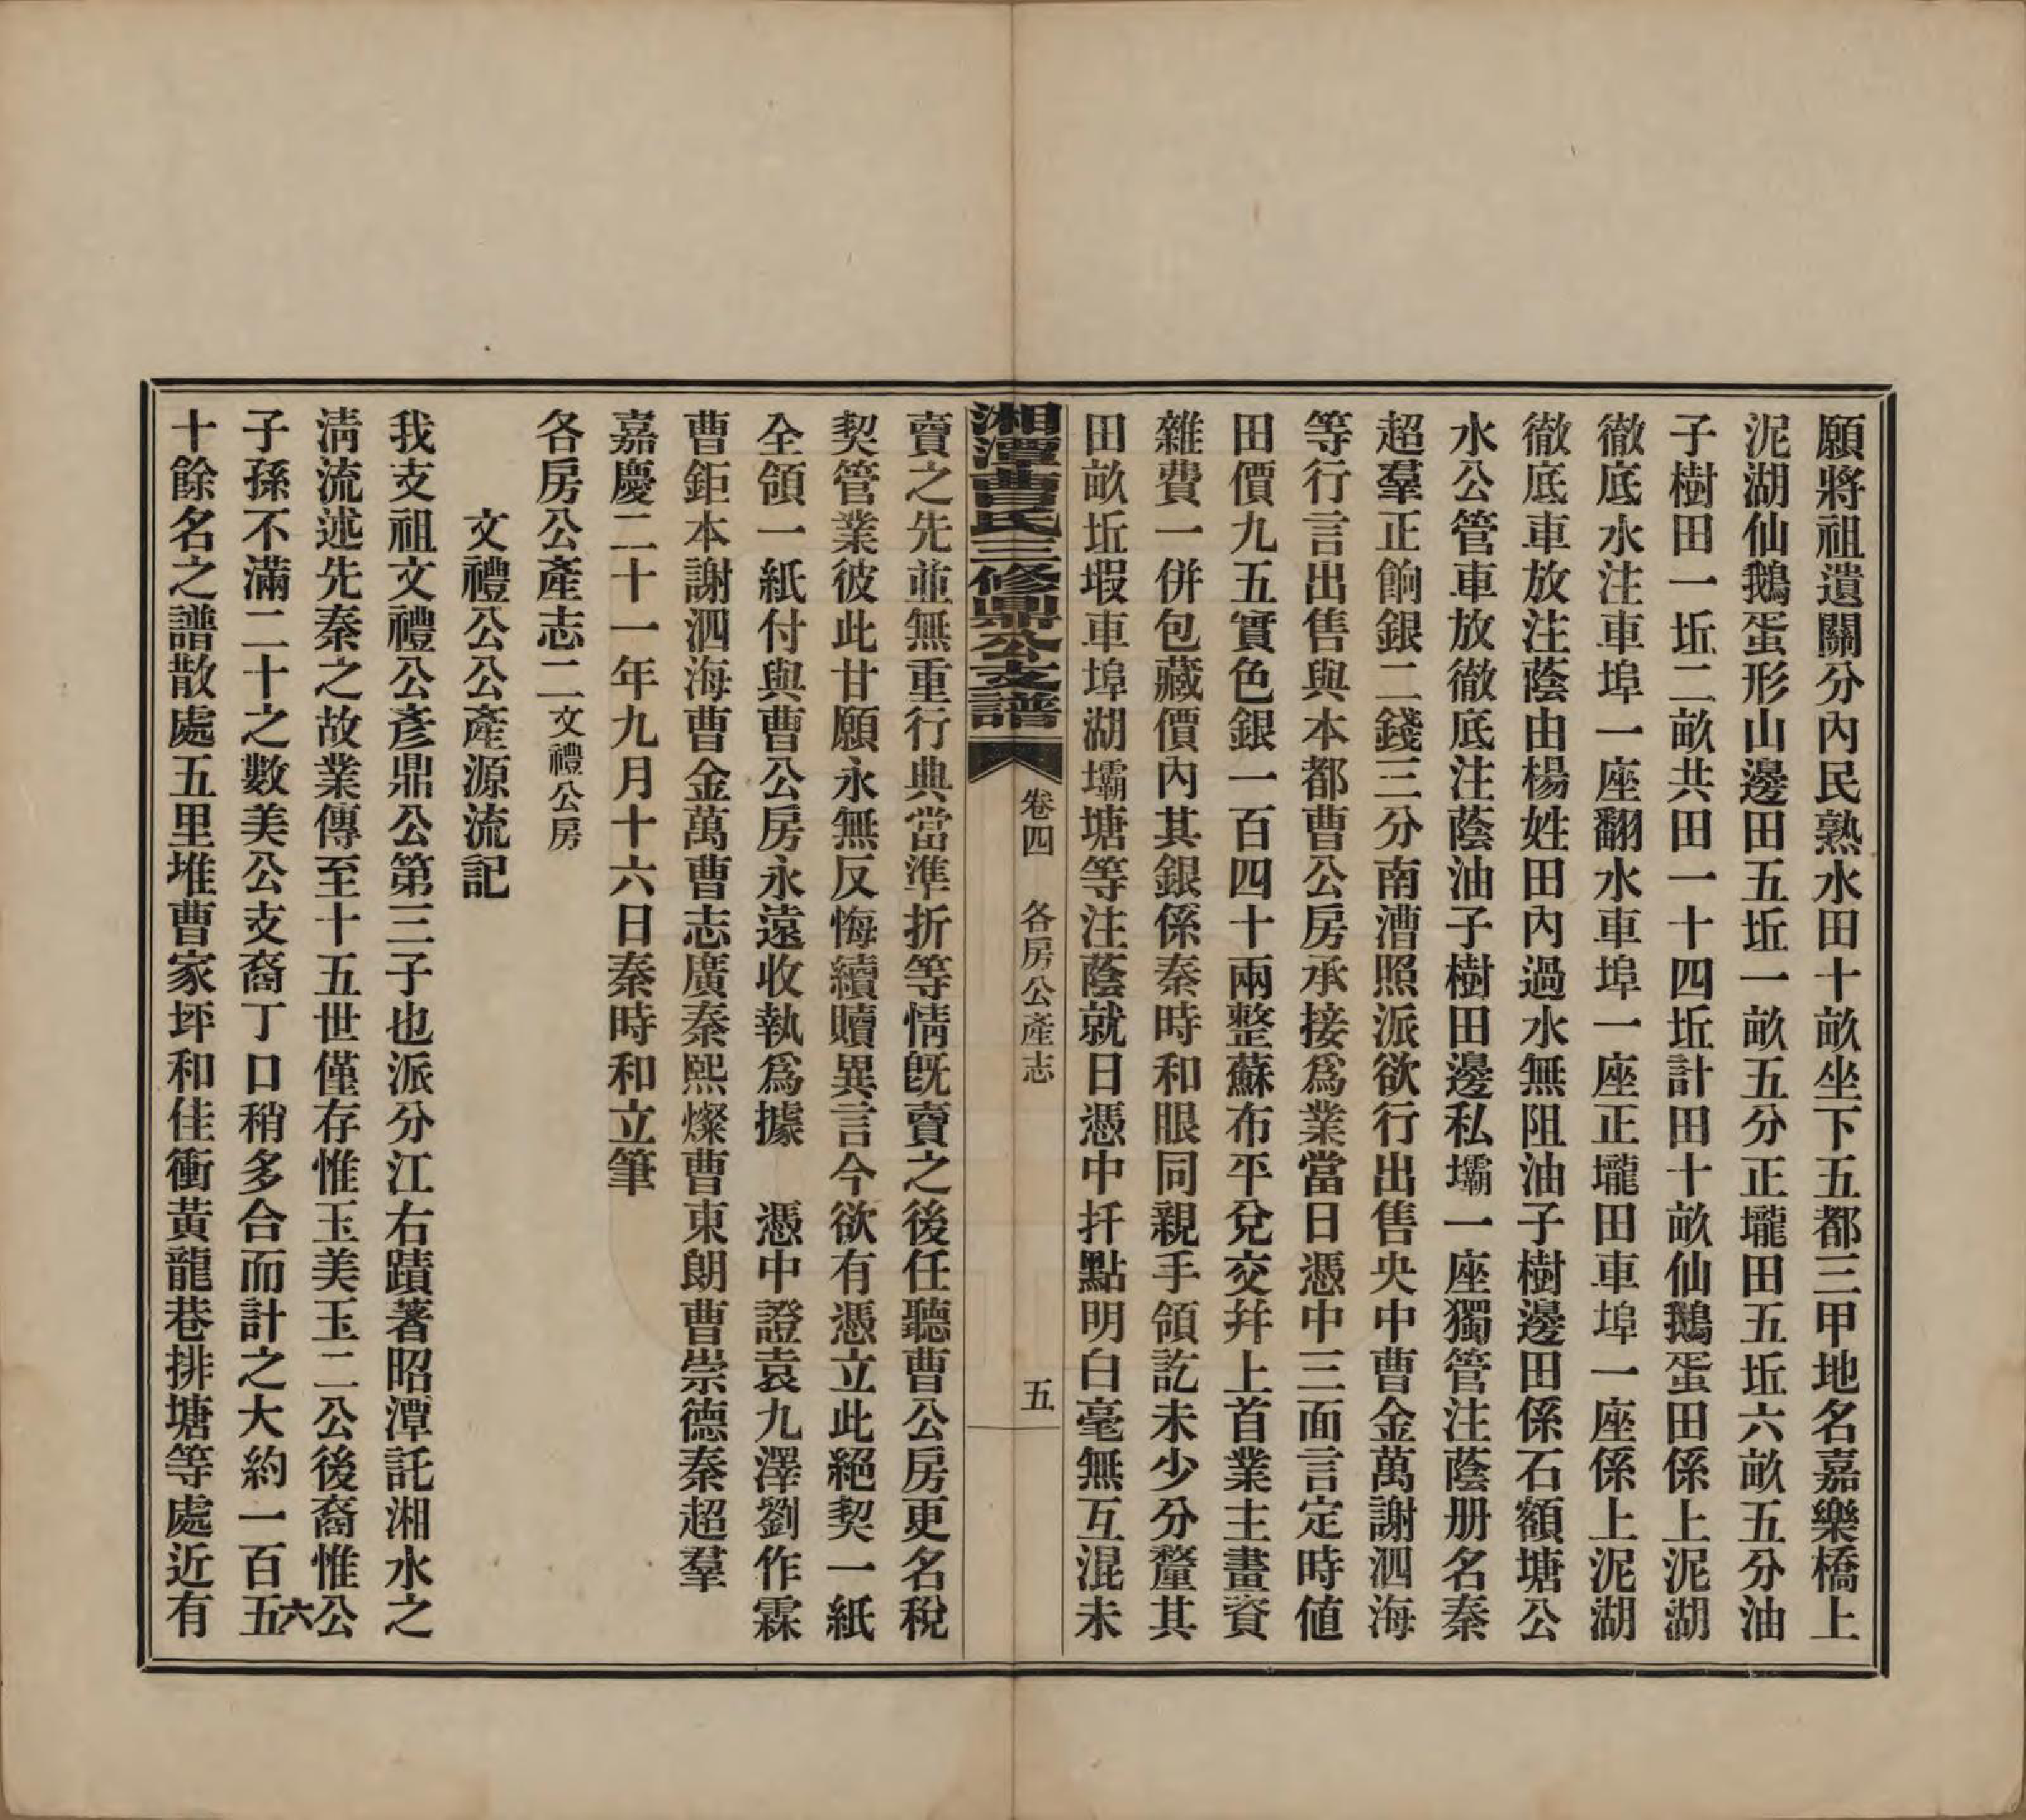 願將祖遺關分內民熟水田十畝坐下五都三甲地名嘉樂橋上
泥湖仙鵝蛋形山邊田五坵一畝五分正壠田五坵六畝五分油
子樹田一坵二畝共田一十四坵計田十畝仙鵝蛋田係上泥湖
徹底水注車埠一座翻水車埠一座正壠田車埠一座係上泥湖
徹底車放注蔭由楊姓田內過水無阻油子樹邊田係石額塘公
水公管車放徹底注蔭油子樹田邊私壩一座獨管注蔭册名秦
超羣正餉銀二錢三分南漕照派欲行出售央中曹金萬謝泗海
等行言出售與本都曹公房承接爲業當日憑中三面言定時値
田價九五實色銀一百四十兩整蘇布平兌交幷上首業主畫資
雜費一併包藏價內其銀係秦時和眼同親手領訖未少分釐其
田畝坵塅車埠湖壩塘等注蔭就日憑中扦點明白毫無互混未
湘潭曹氏三修鼎公支譜 卷四 各房公產志 五
賣之先並無重行典當準折等情旣賣之後任聽曹公房更名稅
契管業彼此甘願永無反悔續贖異言今欲有憑立此絕契一紙
全領一紙付與曹公房永遠收執爲據 憑中證袁九澤劉作霖
曹鉅本謝泗海曹金萬曹志廣秦熙燦曹東朗曹崇德秦超羣
嘉慶二十一年九月十六日秦時和立筆
各房公產志二文禮公房
文禮公公產源流記
我支祖文禮公彥鼎公第三子也派分江右蹟著昭潭託湘水之
淸流述先秦之故業傳至十五世僅存惟玉美玉二公後裔惟公
子孫不滿二十之數美公支裔丁口稍多合而計之大約一百五六
十餘名之譜散處五里堆曹家坪和佳衝黃龍巷排塘等處近有